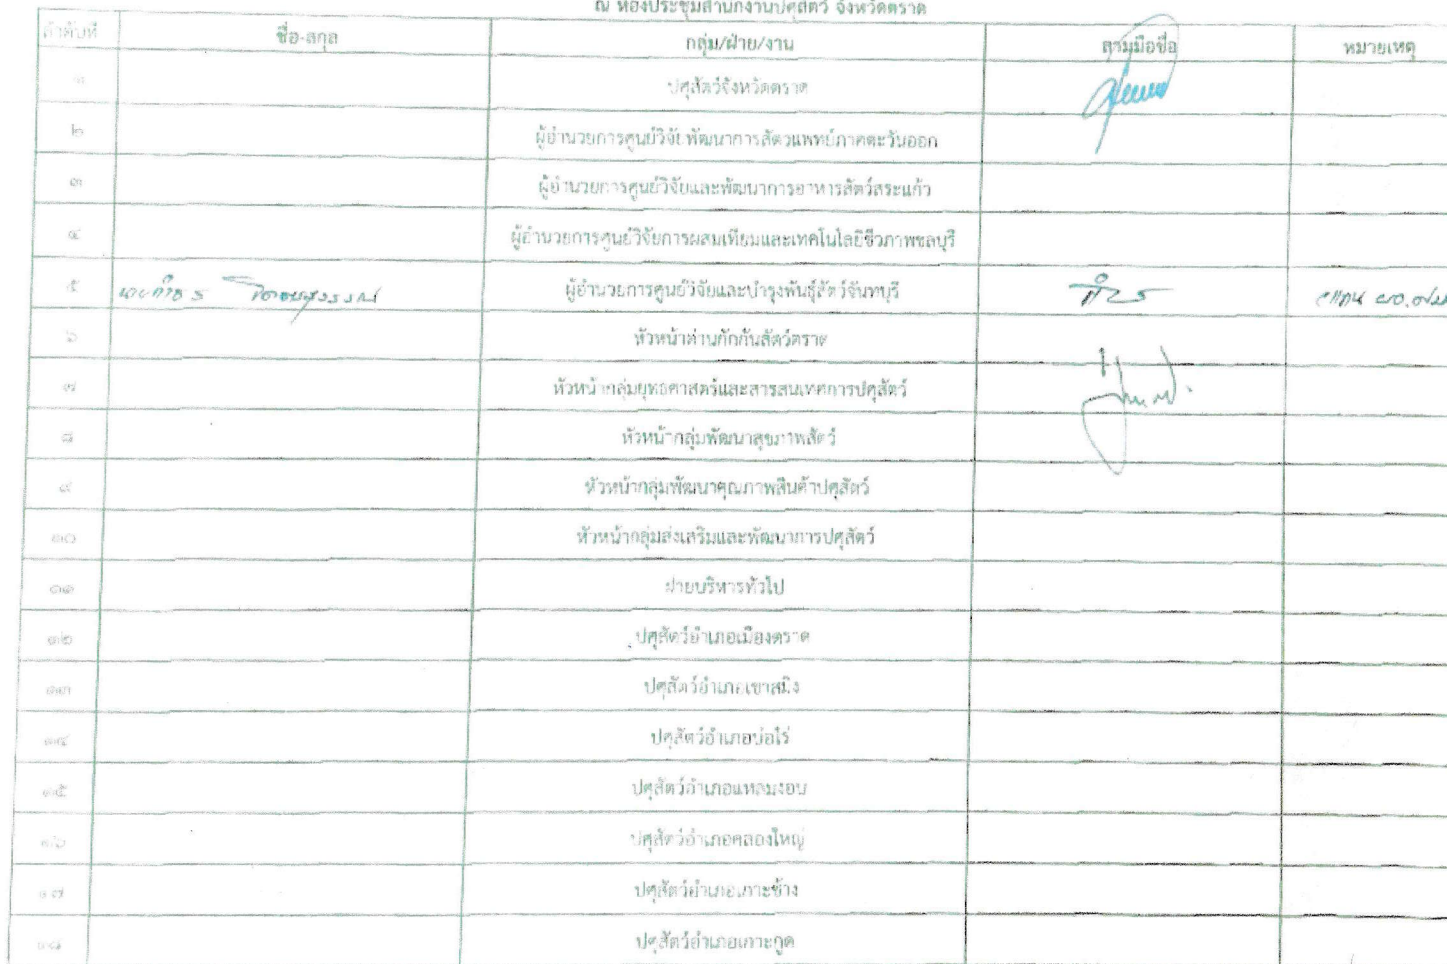 ณ ห้องประชุมสำนักงานปศุสัตว์ จังหวัดตราด
ลำดับที่ ชื่อ-สกุล กลุ่ม/ฝ่าย/งาน ลายมือชื่อ หมายเหตุ
๑ ปศุสัตว์จังหวัดตราด
๒ ผู้อำนวยการศูนย์วิจัยพัฒนาการสัตวแพทย์ภาคตะวันออก
๓ ผู้อำนวยการศูนย์วิจัยและพัฒนาการอาหารสัตว์สระแก้ว
๔ ผู้อำนวยการศูนย์วิจัยการผสมเทียมและเทคโนโลยีชีวภาพชลบุรี
๕ ผู้อำนวยการศูนย์วิจัยและบำรุงพันธุ์สัตว์จันทบุรี
๖ หัวหน้าด่านกักกันสัตว์ตราด
๗ หัวหน้ากลุ่มยุทธศาสตร์และสารสนเทศการปศุสัตว์
๘ หัวหน้ากลุ่มพัฒนาสุขภาพสัตว์
๙ หัวหน้ากลุ่มพัฒนาคุณภาพสินค้าปศุสัตว์
๑๐ หัวหน้ากลุ่มส่งเสริมและพัฒนาการปศุสัตว์
๑๑ ฝ่ายบริหารทั่วไป
๑๒ ปศุสัตว์อำเภอเมืองตราด
๑๓ ปศุสัตว์อำเภอเขาสมิง
๑๔ ปศุสัตว์อำเภอบ่อไร่
๑๕ ปศุสัตว์อำเภอแหลมงอบ
๑๖ ปศุสัตว์อำเภอคลองใหญ่
๑๗ ปศุสัตว์อำเภอเกาะช้าง
๑๘ ปศุสัตว์อำเภอเกาะกูด